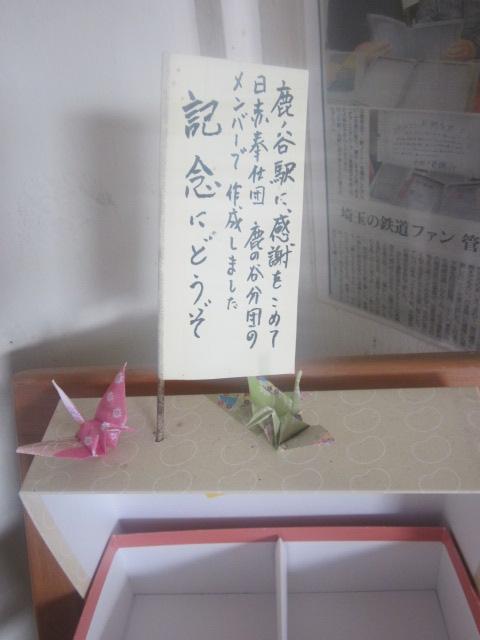 鹿ノ谷駅に、感謝をこめて
日赤奉仕団 鹿の谷分団の
メンバーで 作成しました
記念にどうぞ
埼玉の鉄道ファン 管